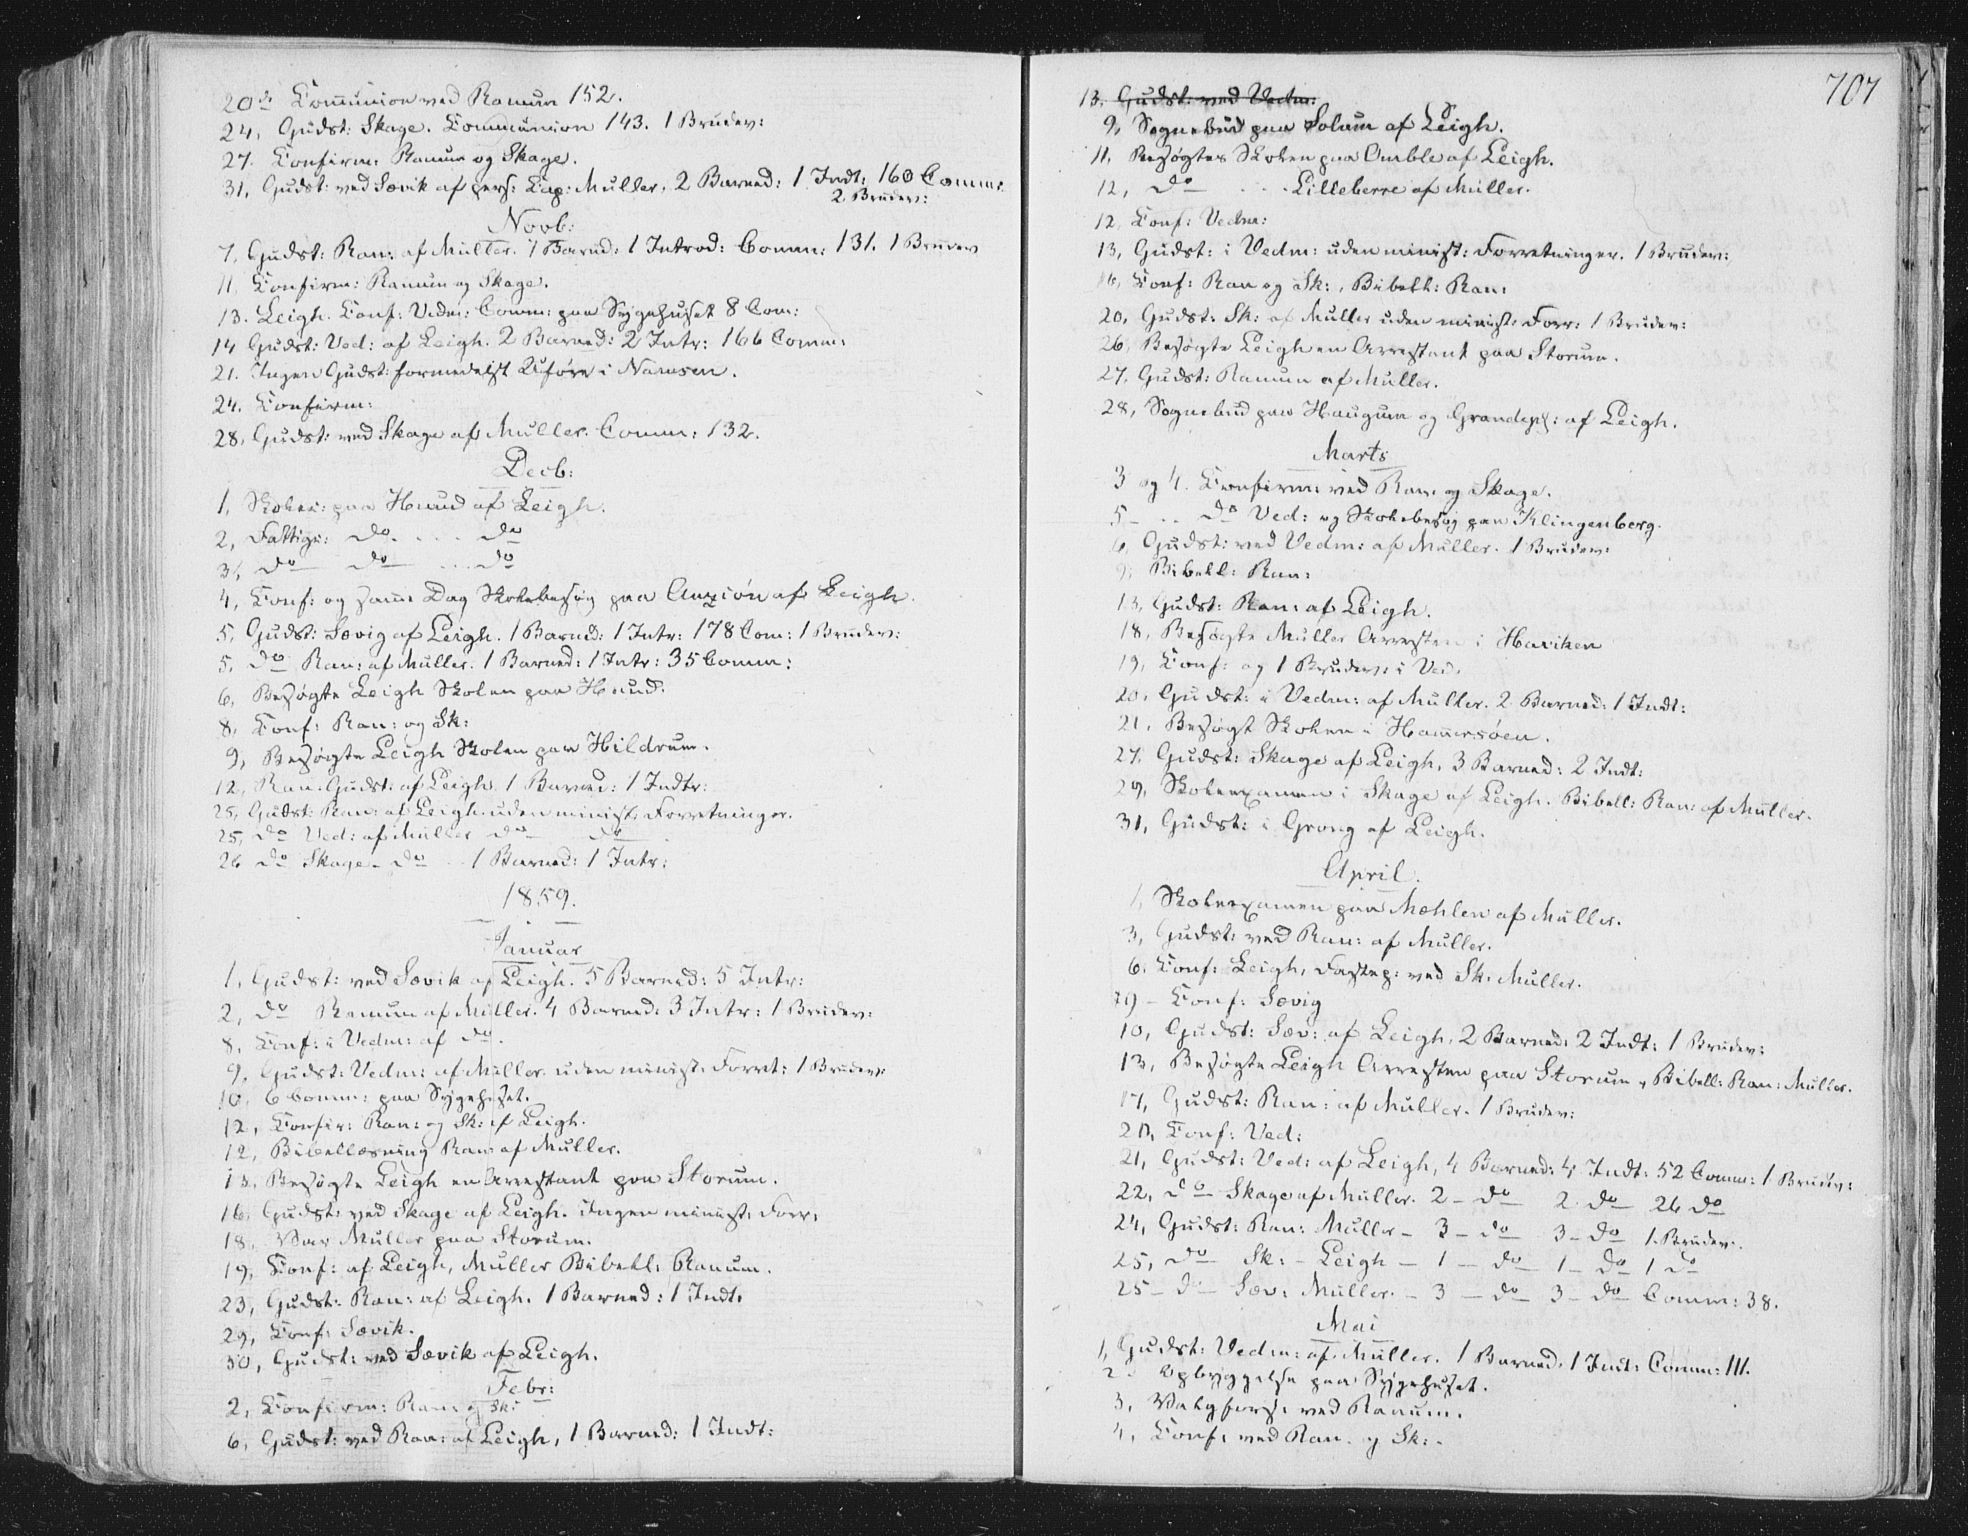 20de Communion ved Ranum 152.
24, Gudst: Skage. Communion 143. 1 Brudev:
27. Confirm: Ranum og Skage.
31, Gudst: ved Sævik af pers: Cap: Müller, 2 Barned: 1 Indt: 160 Comm:
2 Brudev:
Novb:
7, Gudst: Ran: af Müller. 7 Barned: 1 Introd: Comm: 131. 1 Brudev
11. Confirm: Ranum og Skage.
13. Leigh. Conf: Vedm: Comm: paa Sygehuset 8 Com:
14 Gudst: Ved: af Leigh. 2 Barned: 2 Intr: 166 Comm:
21. Ingen Gudst: formedelst Uføre i Namsen.
24. Confirm:
28, Gudst: ved Skage af Müller. Comm: 132.
Decb:
1, Skolen: paa Hund af Leigh.
2, Fattigv: do. . . . do
3, do do ... do
4, Conf: og samme Dag Skolebesøg paa Auxion af Leigh.
5, Gudst: Sævig af Leigh. 1 Barned: 1 Intr: 178 Com: 1 Brudev:
5, do Ran: af Müller. 1 Barned: 1 Intr: 35 Comm:
6, Besøgte Leigh Skolen paa Hund.
8, Conf: Ran: og Sk:
9, Besøgte Leigh Skolen paa Hildrum.
12, Ran: Gudst: af Leigh 1 Barned: 1 Indtr:
25, Gudst: Ran: af Leigh uden minist: Forretninger.
25, do Ved: af Müller do do
26 do Skage - do . . 1 Barned: 1 Intr:
1859.
Januar
1, Gudst: ved Sævik af Leigh. 5 Barned: 5 Intr:
2, do Ranum af Müller. 4 Barned: 3 Intr: 1 Brudev:
8, Conf: i Vedm: af do.
9, Gudst: Vedm: af Müller uden minist: Forret: 1 Brudev:
10, 6 Comm: paa Sygehuset.
12, Confir: Ran: og Sk: af Leigh.
12, Bibellæsning Ran: af Müller.
13, Besøgte Leigh en Arrestant paa Storum.
16, Gudst: ved Skage af Leigh. Ingen minist: Forr:
18, Var Müller paa Storum.
19, Conf: af Leigh, Müller Bibell: Ranum.
23, Gudst: Ran: af Leigh. 1 Barned: 1 Indt:
29, Conf: Sævik.
30, Gudst: ved Sævik af Leigh.
Febr:
2, Confirm: Ran: og Sk:
6, Gudst: ved Ran: af Leigh, 1 Barned: 1 Indt:
707
13, Gudst: ved Vedm:
9, Sognebud paa Solum af Leigh.
11, Besøgtes Skolen paa Amble af Leigh.
12, do . . . Lilleberre af Müller.
12, Conf: Vedm:
13, Gudst: i Vedm: uden minist: Forretninger. 1 Brudev:
16, Conf: Ran og Sk:, Bibell: Ran:
20, Gudst: Sk: af Müller uden minist: Forr: 1 Brudev:
26, Besøgte Leigh en Arrestant paa Storum.
27, Gudst: Ranum af Müller.
28, Sognebud paa Haugum og Grandepl: af Leigh.
Marts
3 og 4. Confirm: ved Ran: og Skage.
5 - .. do Ved: og Skolebesøg paa Klingenberg.
6, Gudst: ved Vedm: af Müller. 1 Brudev:
9, Bibell: Ran:
13, Gudst: Ran: af Leigh.
18, Besøgte Müller Arresten i Haviken
19, Conf: og 1 Brudev: i Ved.
20, Gudst: i Vedm: af Müller. 2 Barned: 1 Indt:
21, Besøgt Skolen i Hammersøen.
27, Gudst: Skage af Leigh, 3 Barned: 2 Indt:
29, Skoleexamen i Skage af Leigh. Bibell: Ran: af Müller.
31, Gudst: i Grong af Leigh.
April.
1, Skoleexamen paa Mæhlen af Müller.
3, Gudst: ved Ran: af Müller.
6, Conf: Leigh, Fastep: ved Sk: Müller.
9 - Conf: Sævig
10, Gudst: Sæv: af Leigh, 2 Barned: 2 Indt: 1 Brudev:
13, Besøgte Leigh Arresten paa Storum, Bibell: Ran: Müller.
17, Gudst: Ran: af Müller. 1 Brudev:
20, Conf: Ved:
21, Gudst: Ved: af Leigh, 4 Barned: 4 Indt: 52 Comm: 1 Brudev:
22, do Skage af Müller. 2 - do 2 do 26 do
24, Gudst: Ran: Müller - 3 - do 3 - do 1 Brudev:
25, do Sk: - Leigh - 1 - do 1 - do 1 do
25 - do Sæv: Müller. - 3 - do 3 - do Comm: 38.
Mai
1, Gudst: Vedm: af Müller. 1 Barned: 1 Indt: Comm: 111.
2. Opbyggelse paa Sygehuset.
3, Valgfors: ved Ranum.
4, Conf: ved Ran. og Sk:.